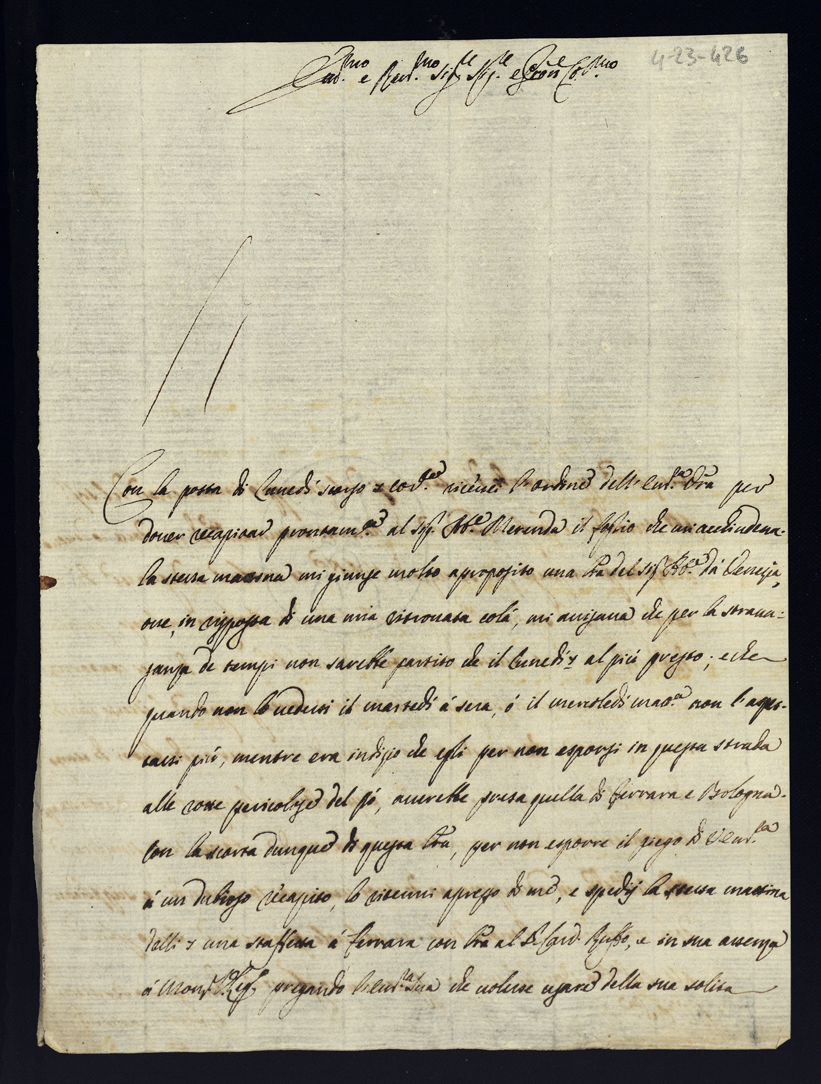 4-23-426
Em.mo e Rev.mo Sig.re Sig.re e Pron.e Col.mo
Con la posta di Lunedì scorso ricevei l'ordine dell'Em.za V.ra per
dover recapitar prontam.te al Sig. Ab.e Merenda il foglio che mi acchiudeva.
la stessa mattina mi giunse molto a proposito una l'ra del Sig. Ab.e da Venezia,
ove, in risposta di una mia ritrovata colà, mi avisava che per la strava=
ganza de tempi non sarebbe partito che il Lunedì al più presto; e che
quando non lo vedessi il martedì à sera, ò il mercoledì mat.a non l'aspet-
tassi più, mentre era indizio che egli per non esporsi in questa strada
alle rotte pericolose del Pò, averebbe presa quella di Ferrara e Bologna.
Con la scorta dunque di questa l'ra, per non esporre il piego di V. Em.za
à un dubioso recapito, lo ritenni apresso di me, e spedij la stessa mattina
delli una staffetta à Ferrara con l'ra al S. Card. Ruffo, e in sua assenza
à Mons. pregando l'Em.za Sua che volesse usare della sua solita